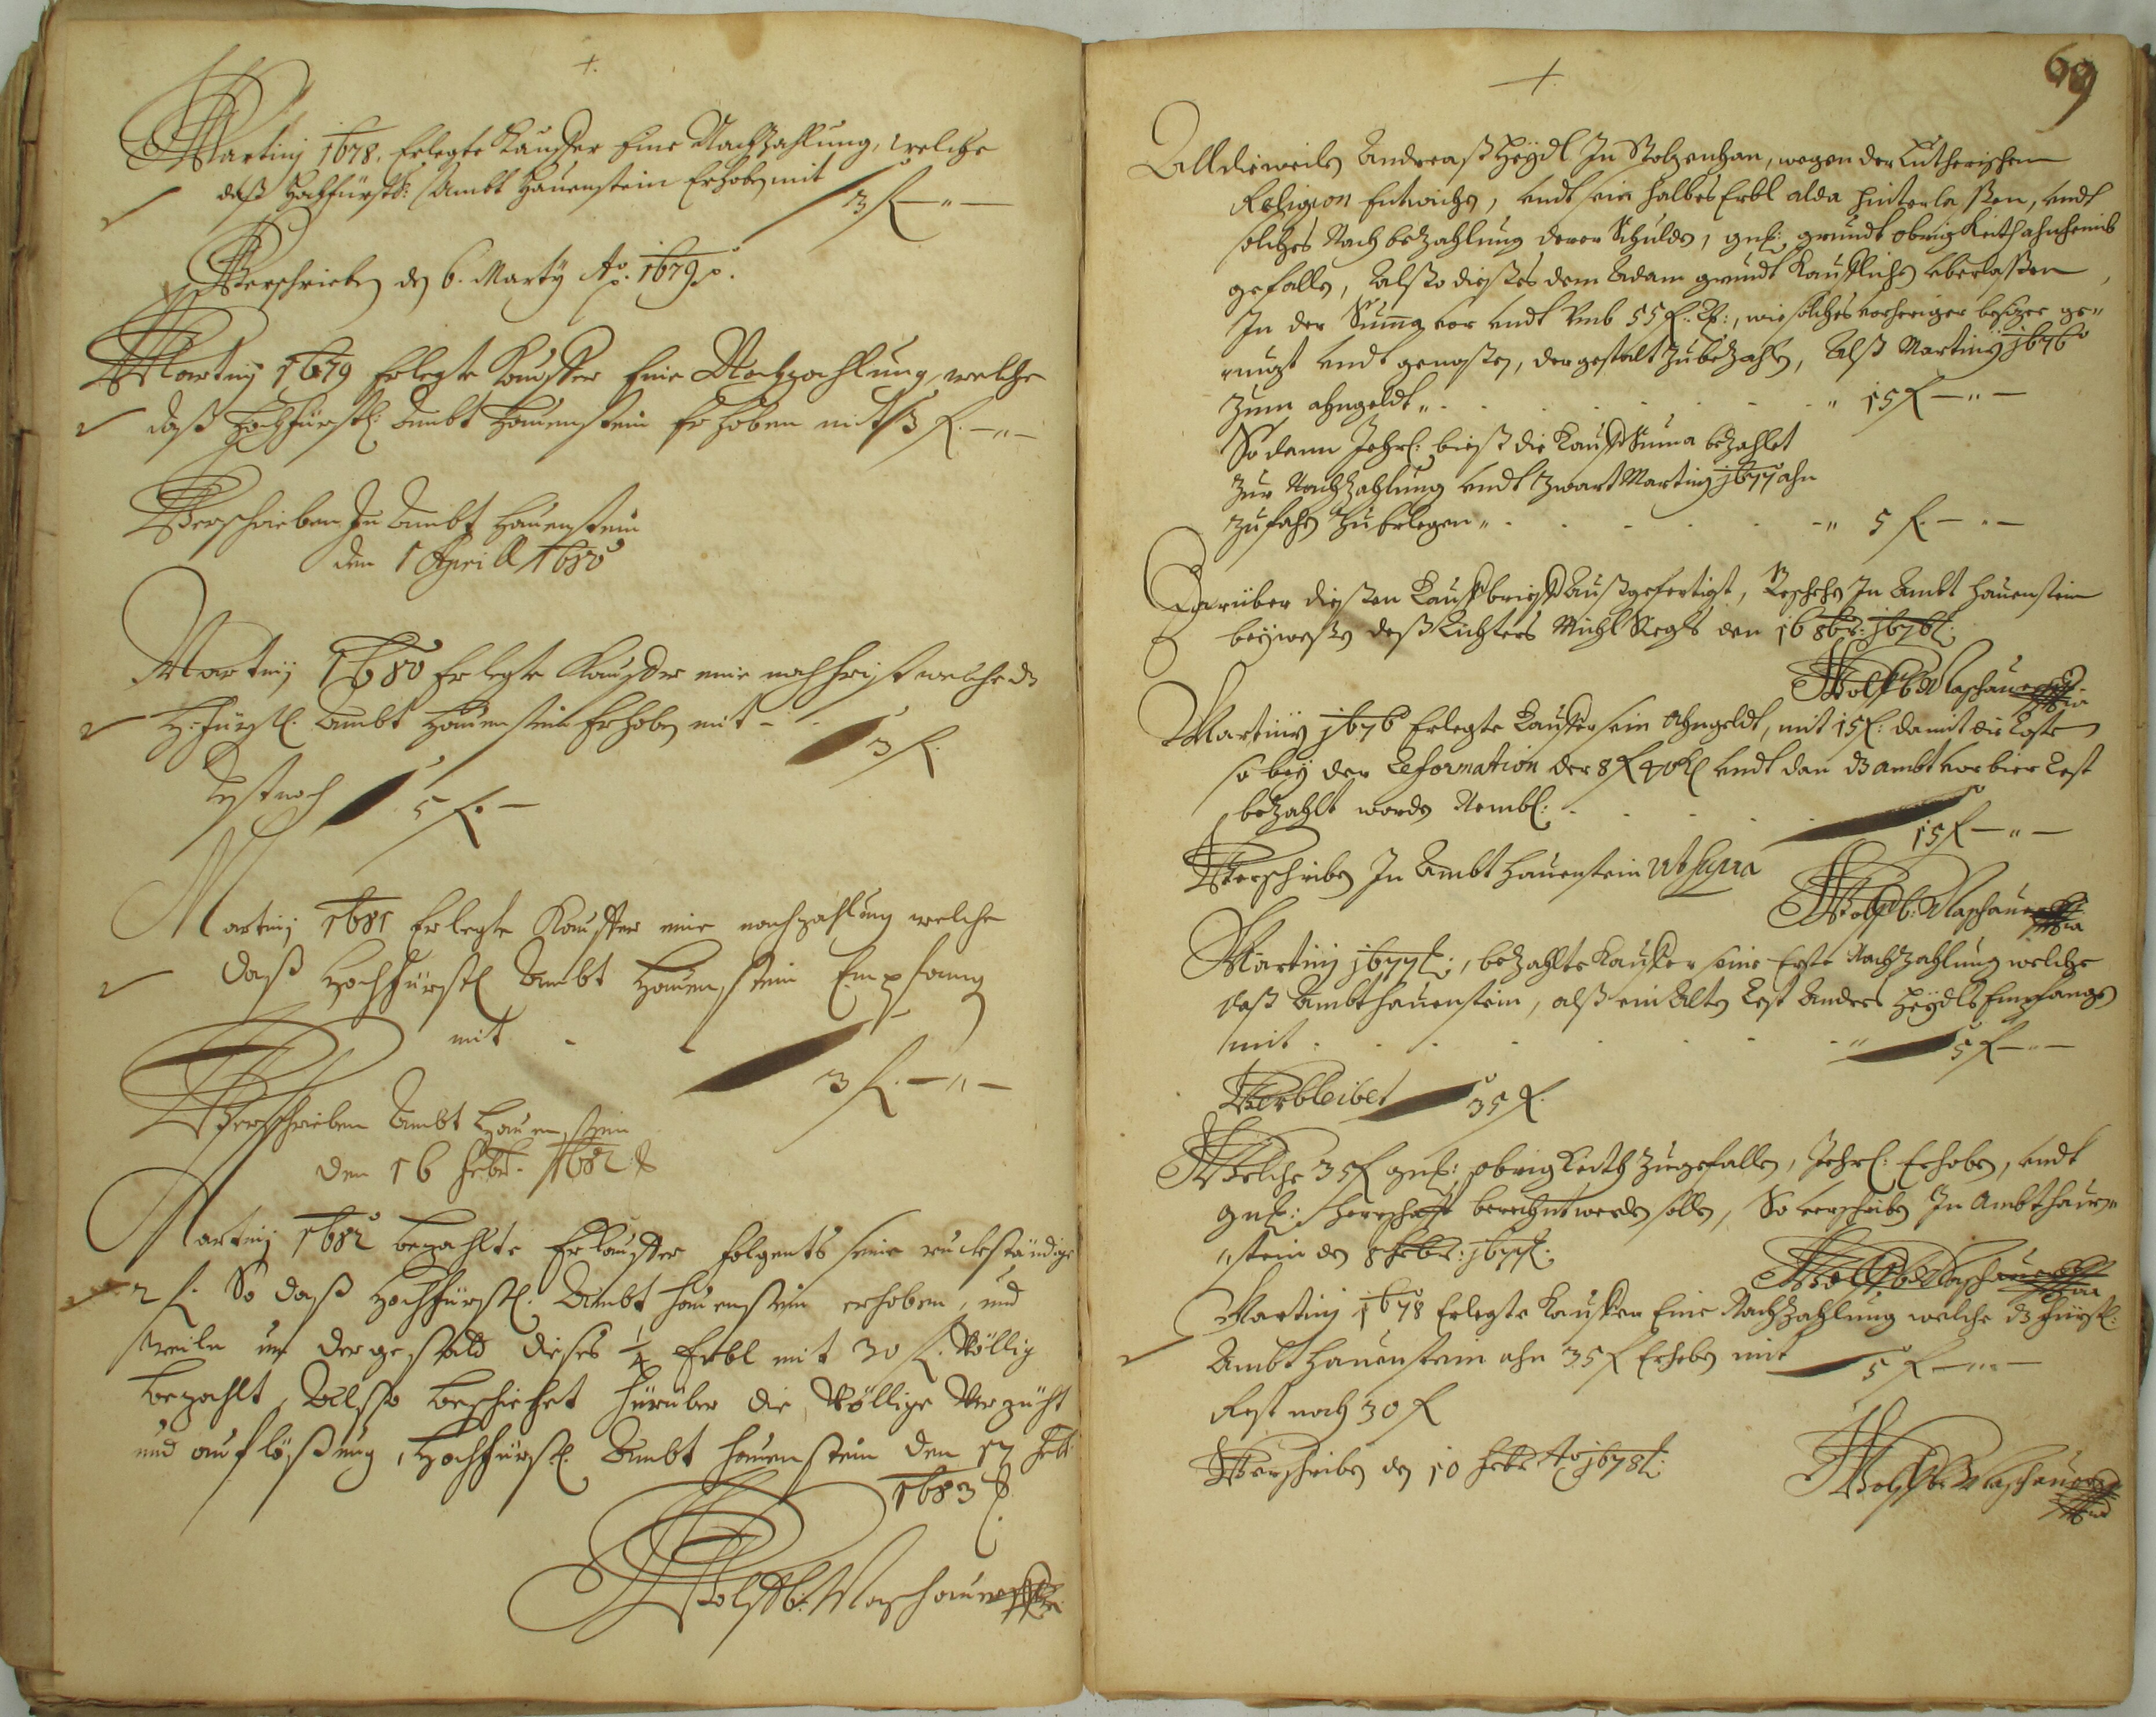 Martinj 1678. Erlegte Kauffer Eine Nachzahlung, welche
daß Hochfürstl: Ambt Hauenstein Erhoben mit
3 f — " —
Verschrieben den 6. Marty Ao. 1679
Martinj 1679 Erlegte Kauffer Eine Nachzahlung, welche
daß Hochfürstl: Ambt Hauenstein Erhoben mit 3 f. — " —
Verschrieben In Ambt Hauenstein
den 1 Aprill 1680
Martinj 1680 Erlegte Kauffer eine nachfrist welche dz
H: fürstl. Ambt Hauenstein Erhoben mit —
3 f.
Rest noch 5 f. —
Martinj 1681 Erlegte Kauffer eine nachzahlung welche
daß Hochfürstl Ambt Hauenstein Empfang
mit
3 f. — " —
Verschrieben Ambt Hauenstein
den 16 Febr. 1682
Martinj 1682 bezahlte Erkauffer folgents seine ruckständige
2 f. So daß Hochfürstl. Ambt Hauenstein erhoben, und
weiln nun dergestald dieses 1/4 Erbl mit 30 f. Völlig
bezahlt, Alß beschiehet hierüber die Völlige Verzücht
und auflößung, Hochfürstl. Ambt Hauenstein den 17 Feb:
1683
Wolff b: Maschauer
+
69
Alldieweiln Andreaß Heydl In Stolzenhan, wegen der Lutherischen
Religion Entwichen, undt sein halbes Erbl alda hinterlaßen, undt
solches Nach bezahlung derer Schulden, gnd: grundt obrigkeith ahnheimb
gefallen, Alß dießes dem Adam grundt Kaufflichen überlaßen
In der Suma vor undt Umb 55 f. , wie solches vorheriger besizer ge"
nuzt undt genoßen, dergestalt zu bezahlen, Alß Martiny j676
zum ahngeldt " " 15 f — " —
So dann Jehrl: bieß die Kauff Suma bezahlet
zur Nachzahlung undt zwart Martiny j677 ahn
zufahen zu Erlegen " " 5 f. — " —
Darüber dießen Kauffbrieff Außgefertigt, Beschehen In Ambt Hauenstein
beyweßen deß Richters Michl den 16 8br: j676
Wolff b: Maschauer
Martiny j676 Erlegte Kauffer sein Ahngeldt, mit 15 f: damit die Cosste
so bey der Reformation der 8 f 40 undt dan dz ambt vor bier Rest
bezahlt worden Nembl:
15 f — " —
Verschriben In Ambt Hauenstein Ut Supra
Wolff b: Maschauer
Martinj j677, bezahlte Kauffer seine Erste Nachzahlung welche
daß Ambt Hauenstein, alß ein Alten Rest Andres Heydls Empfangen
mit " 5 f — " —
Verbleibet 35 f.
Welche 35 f gnd: obrigkeith zugefallen, Jehrl: Erhoben, undt
gnd: Herrschafft berechnet werden sollen, So verschriben In Ambt Hauen"
"stein den 8 Febr: j677
Wolff b: Maschauer
Martinj 1678 Erlegte Kauffer Eine Nachzahlung welche dz fürstl:
Ambt Hauenstein ahn 35 f Erhoben mit 5 f — " —
Rest noch 30 f
Verschriben den 10 Febr Ao j678
Wolff b: Maschauer